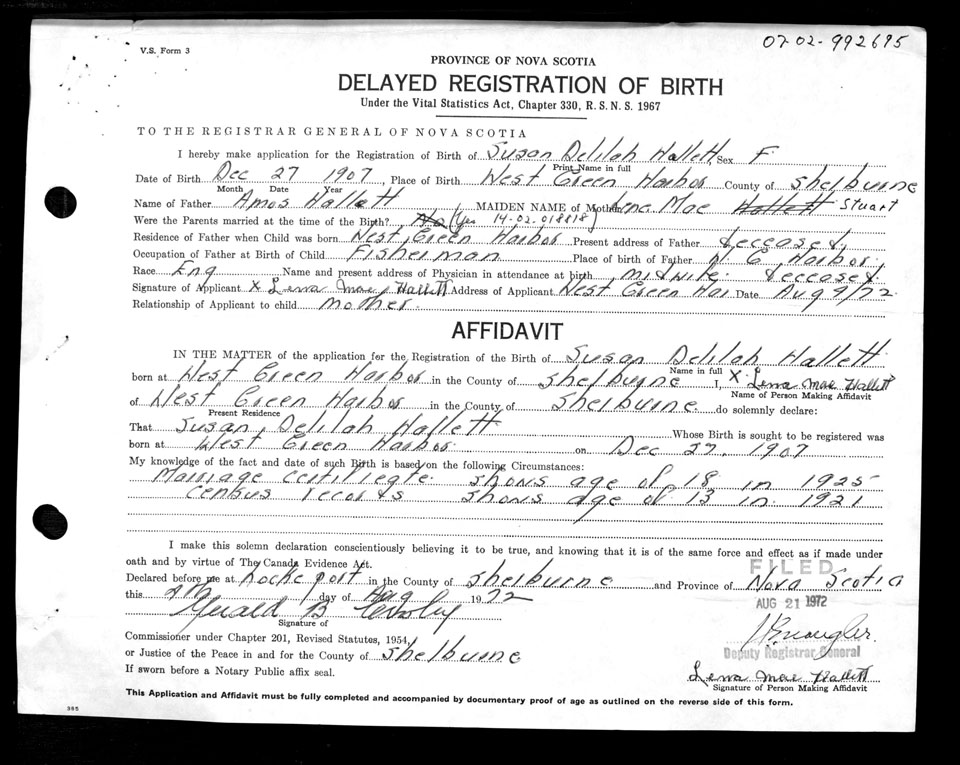 07-02-992695
V.S. Form 3
PROVINCE OF NOVA SCOTIA
DELAYED REGISTRATION OF BIRTH
Under the Vital Statistics Act, Chapter 330, R.S.N.S. 1967
TO THE REGISTRAR GENERAL OF NOVA SCOTIA
I hereby make application for the Registration of Birth of Susan Delilah Hallett Sex F.
Print Name in full
Date of Birth Dec 27 1907 Place of Birth West Green Harbor County of Shelburne
Month Date Year
Name of Father Amos Hallett MAIDEN NAME of Mother Mae Hallett Stuart
Were the Parents married at the time of the Birth? No (Yes 14-02-018818)
Residence of Father when Child was born West Green Harbor Present address of Father deceased.
Occupation of Father at Birth of Child Fisherman Place of birth of Father W. G. Harbor.
Race Eng Name and present address of Physician in attendance at birth midwife. deceased.
Signature of Applicant X Lena Mae Hallett Address of Applicant West Green Har Date Aug 9/72
Relationship of Applicant to child mother.
AFFIDAVIT
IN THE MATTER of the application for the Registration of the Birth of Susan Delilah Hallett
Name in full
born at West Green Harbor in the County of Shelburne I, X Lena Mae Hallett
Name of Person Making Affidavit
of West Green Harbor in the County of Shelburne do solemnly declare:
Present Residence
That Susan Delilah Hallett Whose Birth is sought to be registered was
born at West Green Harbor. on Dec 27, 1907
My knowledge of the fact and date of such Birth is based on the following Circumstances:
Marriage certificate. shows age of 18 in 1925
census records shows age of 13 in 1921
I make this solemn declaration conscientiously believing it to be true, and knowing that it is of the same force and effect as if made under
oath and by virtue of The Canada Evidence Act.
FILED
Declared before me at Locke port in the County of Shelburne and Province of Nova Scotia
this 9th day of Aug 1972
AUG 21 1972
Gerald B
Signature of
Commissioner under Chapter 201, Revised Statutes, 1954,
or Justice of the Peace in and for the County of Shelburne
Deputy Registrar General
If sworn before a Notary Public affix seal.
Lena Mae Hallett
Signature of Person Making Affidavit
This Application and Affidavit must be fully completed and accompanied by documentary proof of age as outlined on the reverse side of this form.